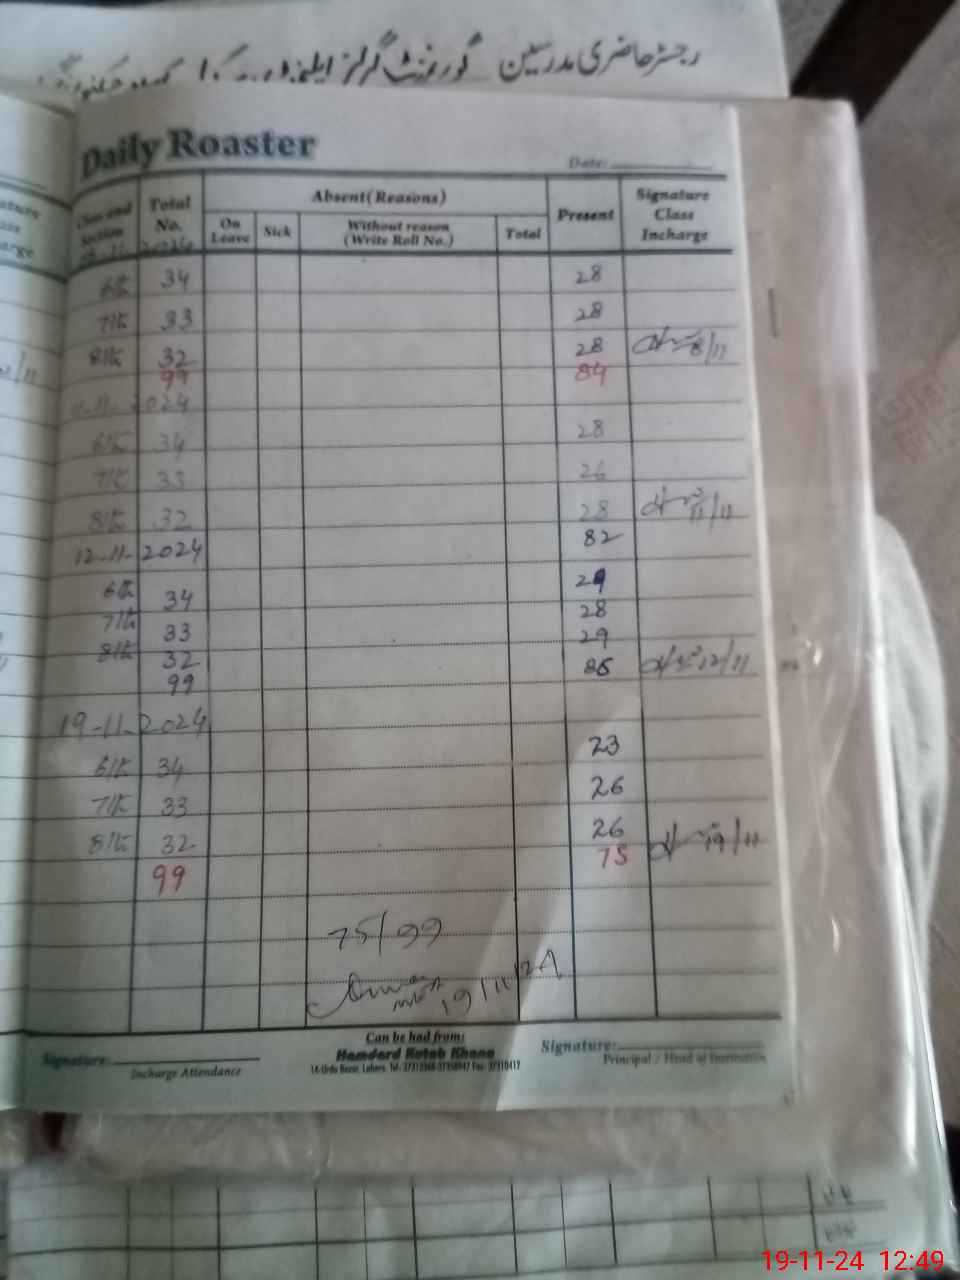 رجسٹر حاضری مدرسین گورنمنٹ گرلز
Daily Roaster
Date:
Class and Section Total No. Absent(Reasons) Present Signature Class Incharge
On Leave Sick Without reason (Write Roll No.) Total
2024
6th 34 28
7th 33 28
8th 32 28 8/11
99 84
11-11-2024
6th 34 28
7th 33 26
8th 32 28 11/11
12-11-2024 82
6th 34 29
7th 33 28
8th 32 29
99 86 12/11
19-11-2024
6th 34 23
7th 33 26
8th 32 26 19/11
99 75
75/99
19/11/24
Signature: Can be had from: Signature:
Incharge Attendance Hamdard Kutab Khana Principal / Head of Institution
14-Urdu Bazar, Lahore.
19-11-24 12:49